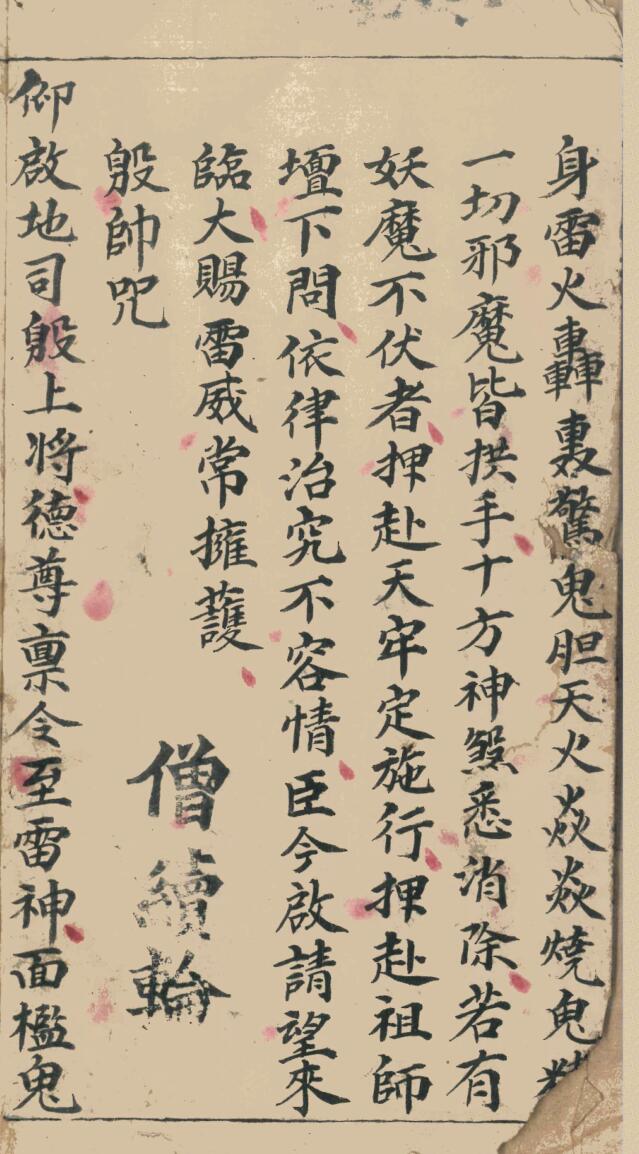 身雷火轟轟驚鬼胆天火焱焱燒鬼精
一切邪魔皆拱手十方神煞悉消除若有
妖魔不伏者押赴天牢定施行押赴祖師
壇下問依律治究不容情臣今啟請望來
臨大賜雷威常擁護
殷帥咒
僧續輪
仰啟地司殷上將德尊禀令至雷神面檻鬼